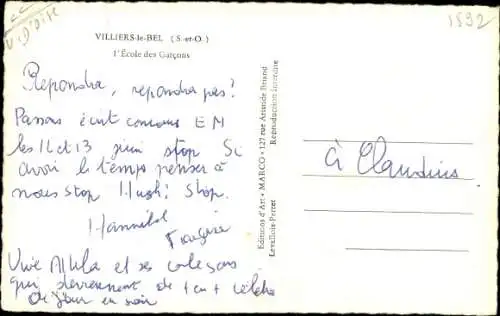 V. D'OISE
1592
VILLIERS-le-BEL (S.-et-O.)
l'École des Garçons
Répondra, répondra pas?
Passons écrit concours E M
les 12 et 13 juin stop Si
avoir le temps penser à
nous stop Hugh! Stop.
Hannibal
Françoise
Vive Attila et ses
qui deviennent de + en + célèbres
de jour en
à Claudius
Editions d'Art • MARCO • 127 rue Aristide Briand
Levallois-Perret
Reproduction interdite